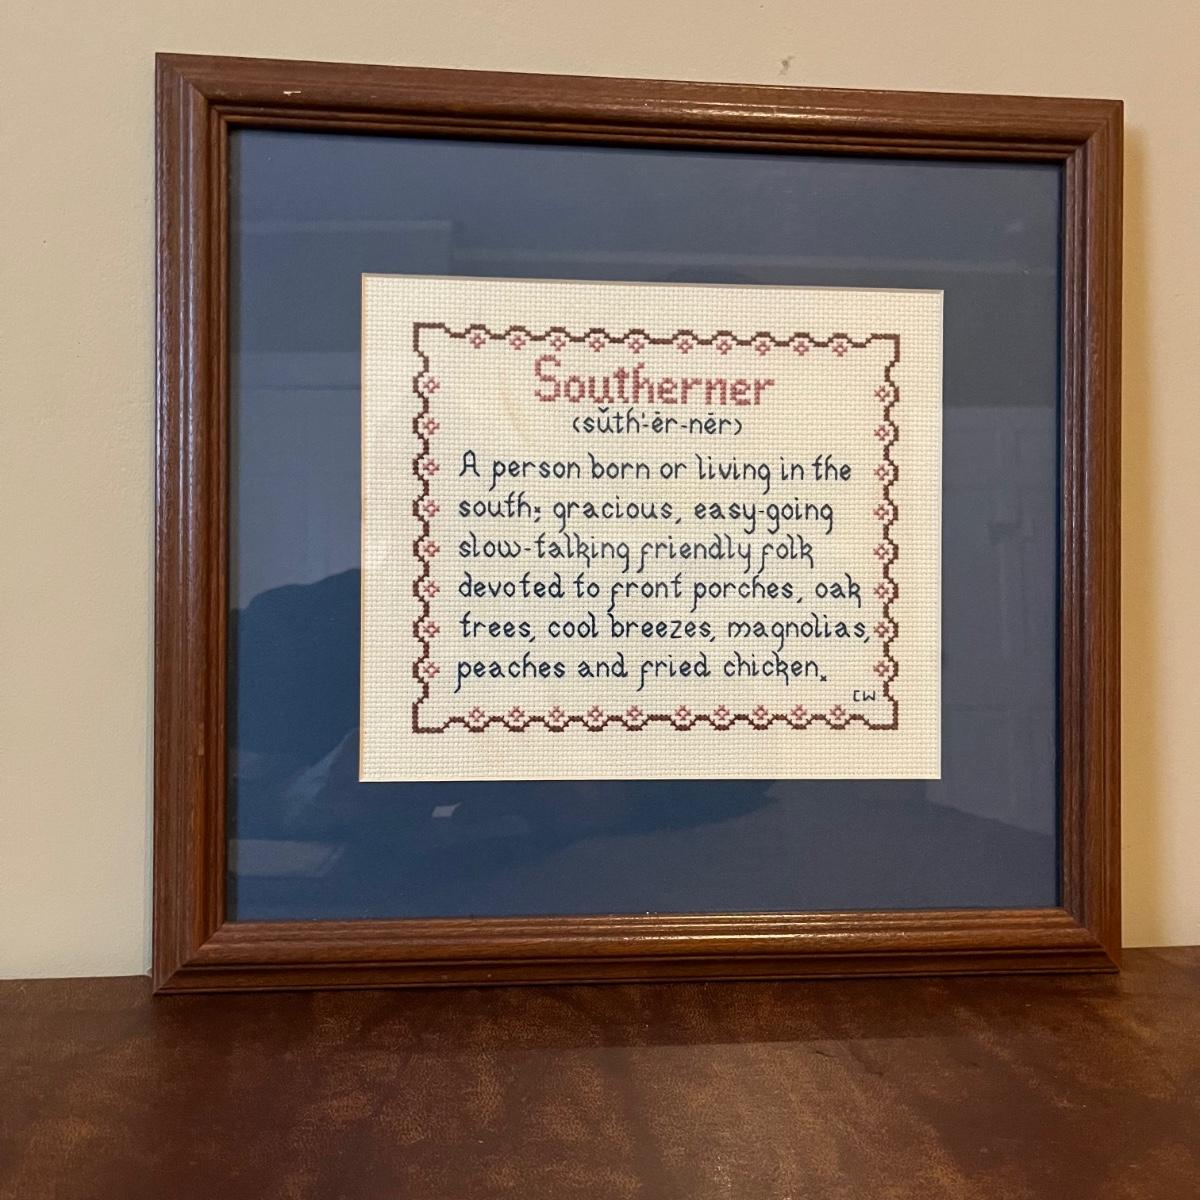 Southerner
(sŭth'-ēr-nēr)
A person born or living in the
south; gracious, easy-going
slow-talking friendly folk
devoted to front porches, oak
trees, cool breezes, magnolias,
peaches and fried chicken.
CW